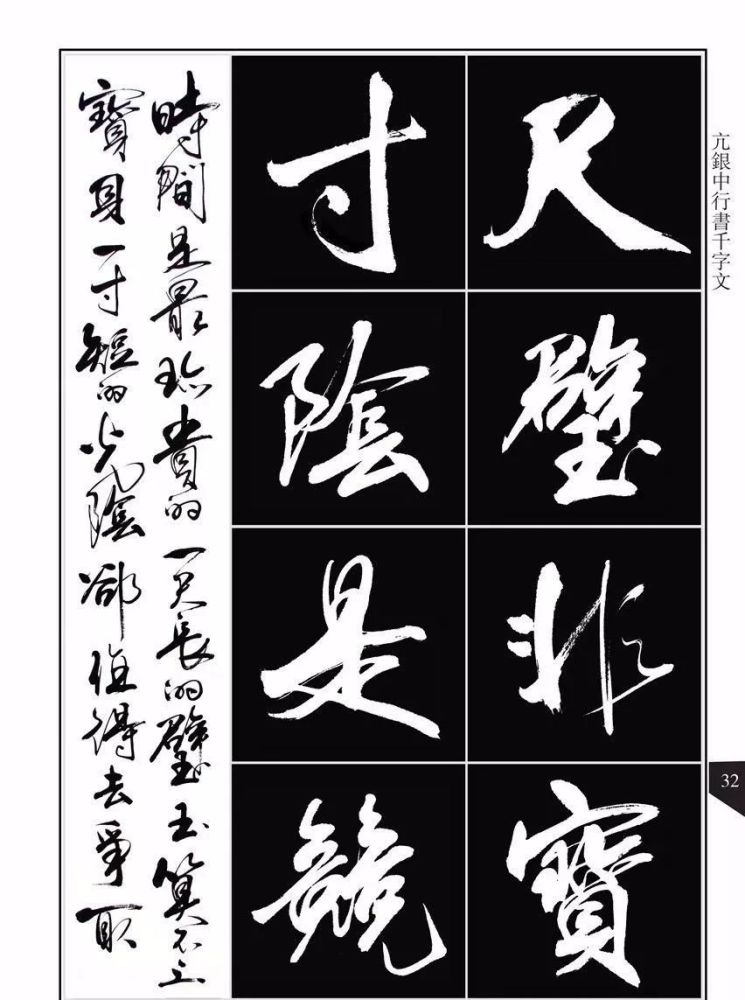 亢銀中行書千字文
尺璧非寶
寸陰是競
時間是最珍貴的一尺長的璧玉算不上
寶貝一寸短的光陰卻值得去爭取
32